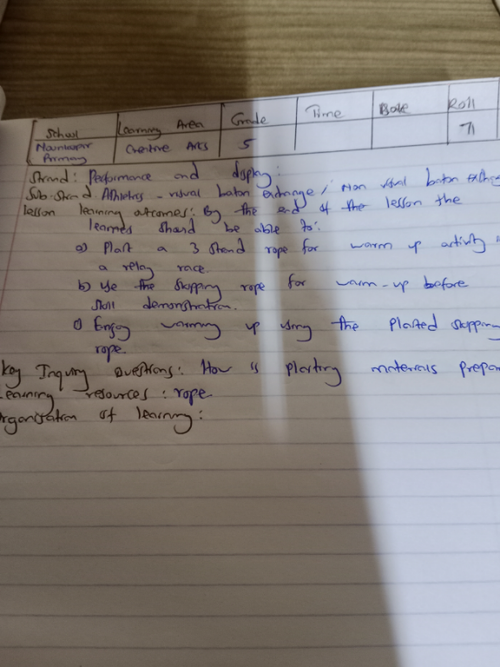 School Learning Area Grade Time Date Roll
Primary Creative Arts 5 71
Strand: Performance and display:
Sub strand Athletics - visual baton exchange, Non visual baton
lesson learning outcomes: By the end of the lesson the
learner should be able to:
a) Plait a 3 strand rope for warm up activity
a relay race.
b) Use the skipping rope for warm-up before
skill demonstration.
c) Enjoy warming up using the plaited skipping
rope.
key Inquiry Questions: How is plaiting materials prepa
Learning resources: rope.
Organisation of learning: